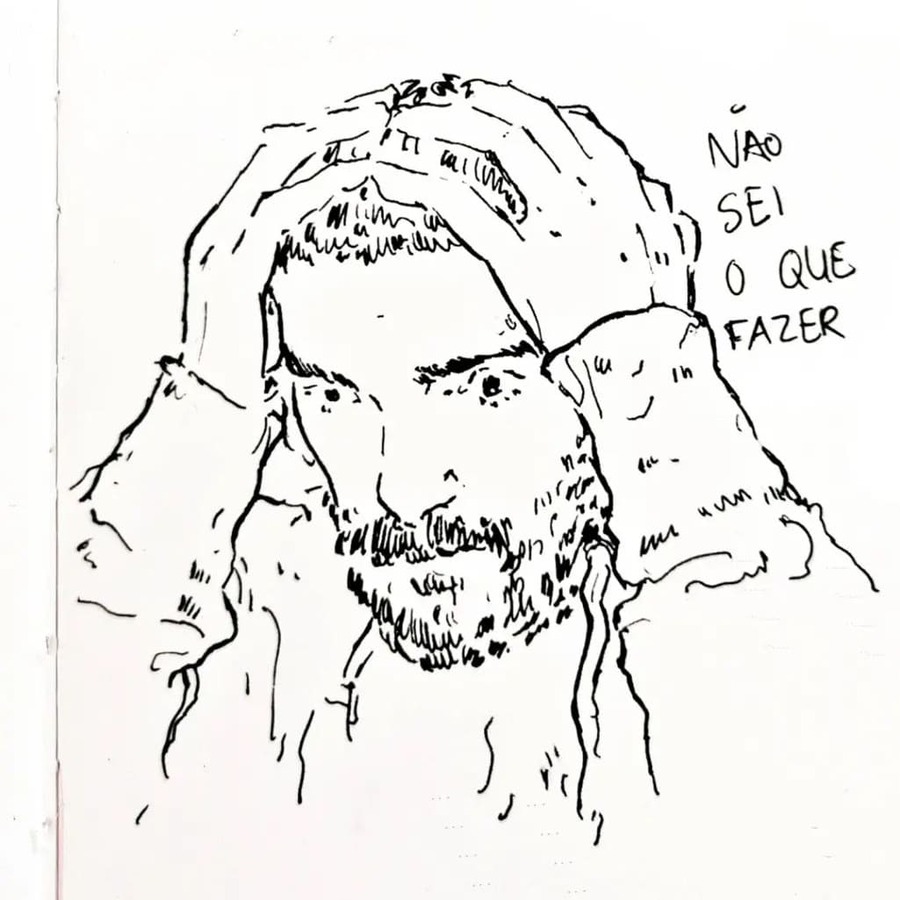 NÃO
SEI
O QUE
FAZER